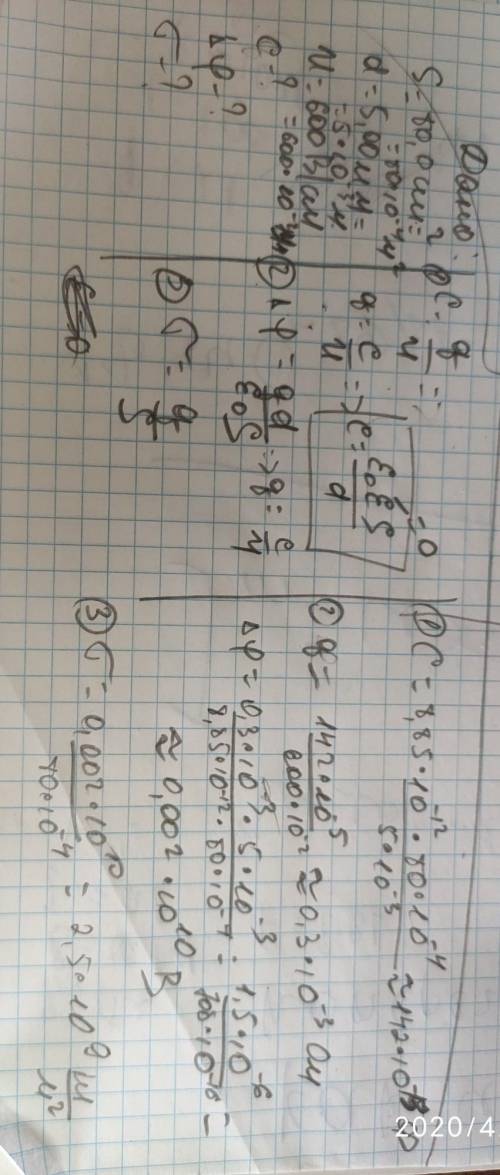 Дано:
S = 80,0 см² =
= 80·10⁻⁴ м²
d = 5,00 мм =
= 5·10⁻³ м
U = 600 В/см
= 600·10⁻²
C - ?
Δφ - ?
σ - ?
① C = q/U =>
q = C/U => C = ε₀εS/d = 0
② Δφ = qd/ε₀S => q = C/U
③ σ = q/S
① C = 8,85·10⁻¹² · 80·10⁻⁴ / 5·10⁻³ ≈ 142·10
② q = 142·10⁻⁵ / 600·10⁻² ≈ 0,3·10⁻³
Δφ = 0,3·10⁻³ · 5·10⁻³ / 8,85·10⁻¹² · 80·10⁻⁴ = 1,5·10⁻⁶ / 708·10⁻¹⁶ =
≈ 0,002·10¹⁰ В
③ σ = 0,002·10¹⁰ / 80·10⁻⁴ = 2,5·10⁹ Кл/м²
2020/4